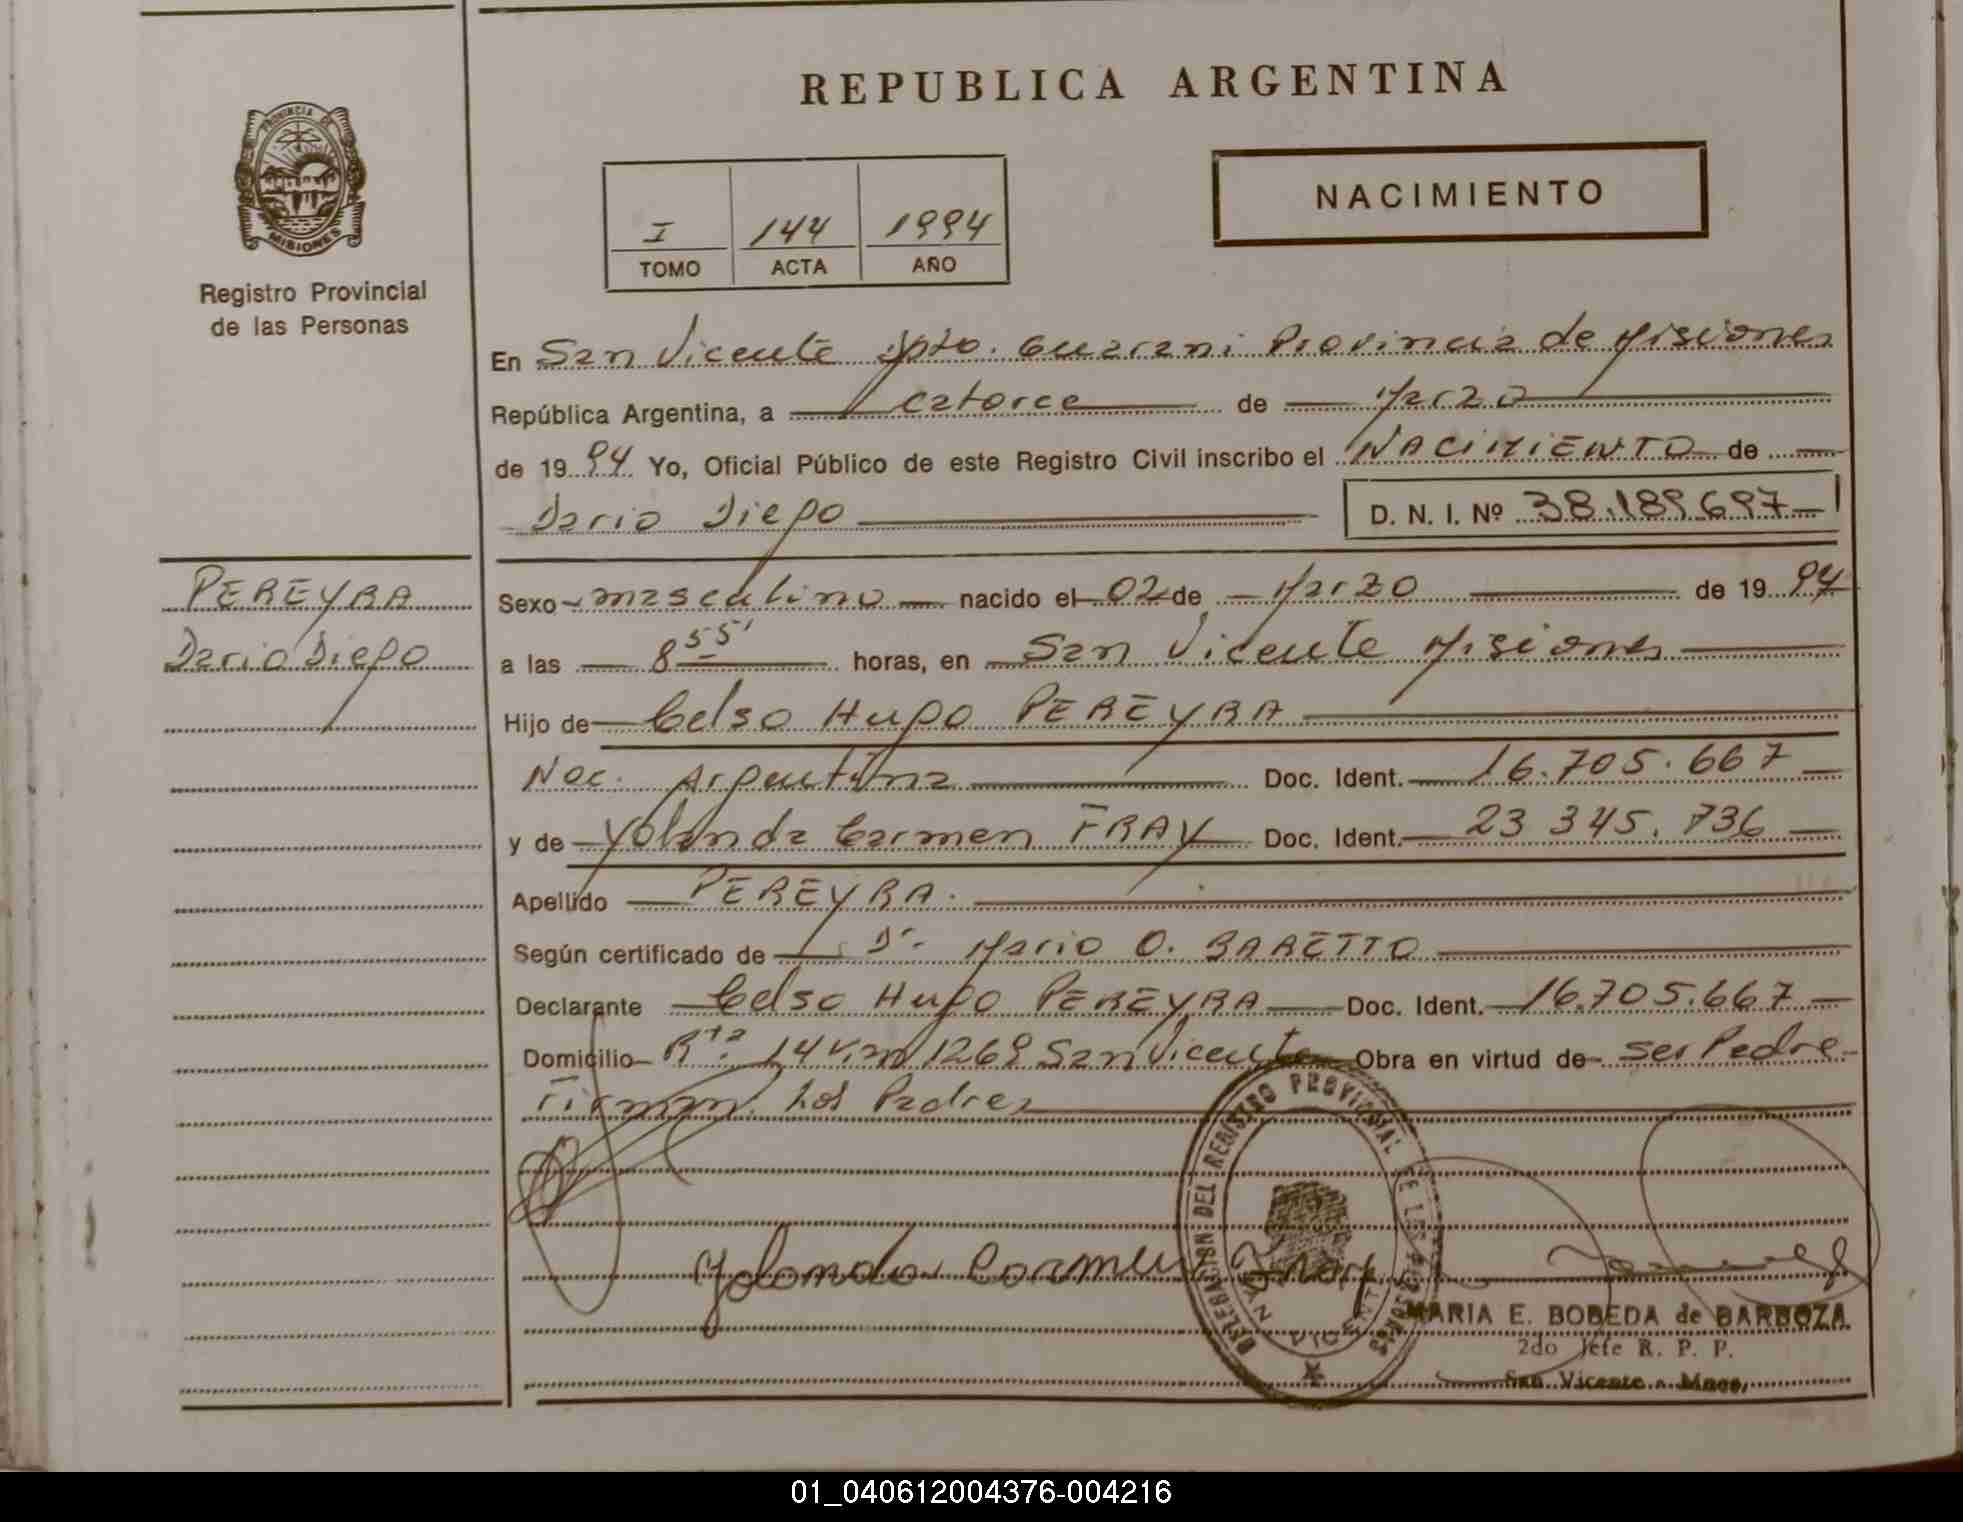 REPUBLICA ARGENTINA
PROVINCIA DE
MISIONES
Registro Provincial
de las Personas
NACIMIENTO
I 144 1994
TOMO ACTA AÑO
En San Vicente Dpto. Guarani Provincia de Misiones
República Argentina, a catorce de Marzo
de 1994 Yo, Oficial Público de este Registro Civil inscribo el NACIMIENTO de
Dario Diego D. N. I. Nº 38.189.697
PEREYRA
Dario Diego
Sexo masculino nacido el 02 de Marzo de 1994
a las 8 55' horas, en San Vicente Misiones
Hijo de Celso Hugo PEREYRA
Nac. Argentina Doc. Ident. 16.705.667
y de Yolanda Carmen FRAY Doc. Ident. 23 345.736
Apellido PEREYRA.
Según certificado de Dr. Mario O. BARETTO
Declarante Celso Hugo PEREYRA Doc. Ident. 16.705.667
Domicilio Rta. 14 Km 1269 San Vicente Obra en virtud de ser Padre
Firman Los Padres
DELEGACION DEL REGISTRO PROVINCIAL DE LAS PERSONAS
Yolanda Carmen Fray
MARIA E. BOBEDA de BARBOZA
2do Jefe R. P. P.
San Vicente - Mnes.
01_040612004376-004216